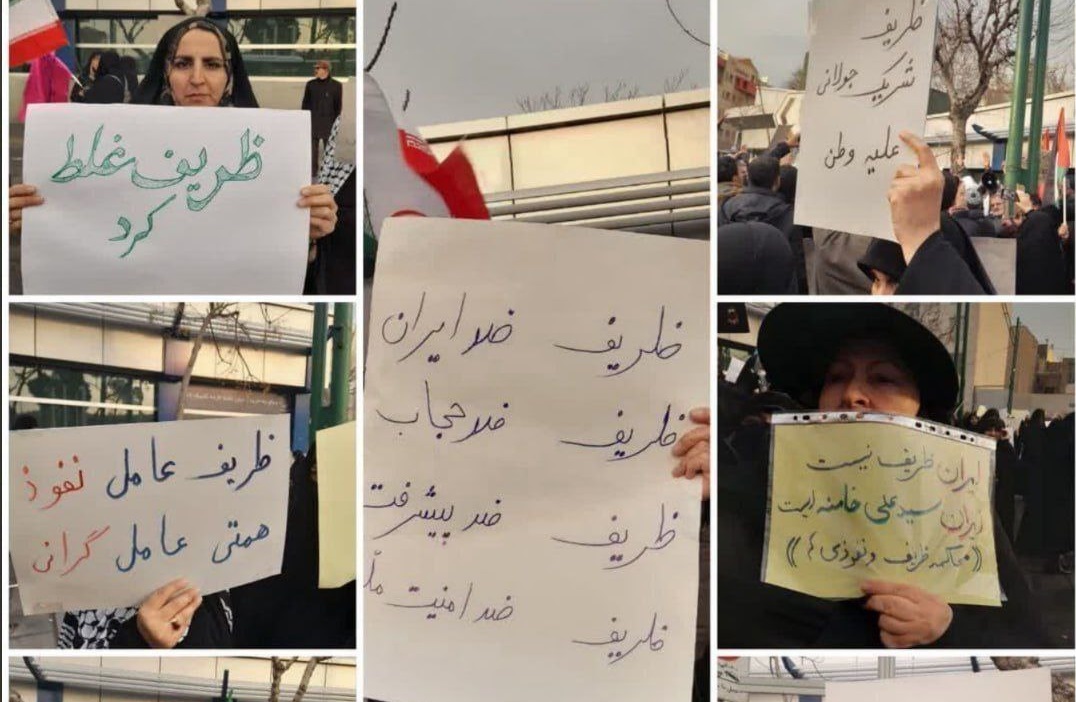 ظریف غلط
کرد
ظریف ضد ایران
ظریف ضد حجاب
ظریف ضد پیشرفت
ظریف ضد امنیت
ظریف
شریک جولانی
علیه وطن
ظریف عامل نفوذ
همتی عامل گرانی
ایران ظریف نیست
ایران سید علی خامنه ایست
((محاکمه ظریف و نفوذی ها))